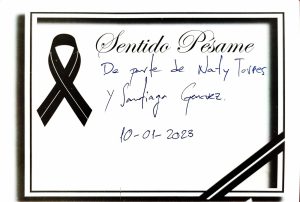 Sentido Pésame
De parte de Naty Torres
Y Santiago
10-01-2023